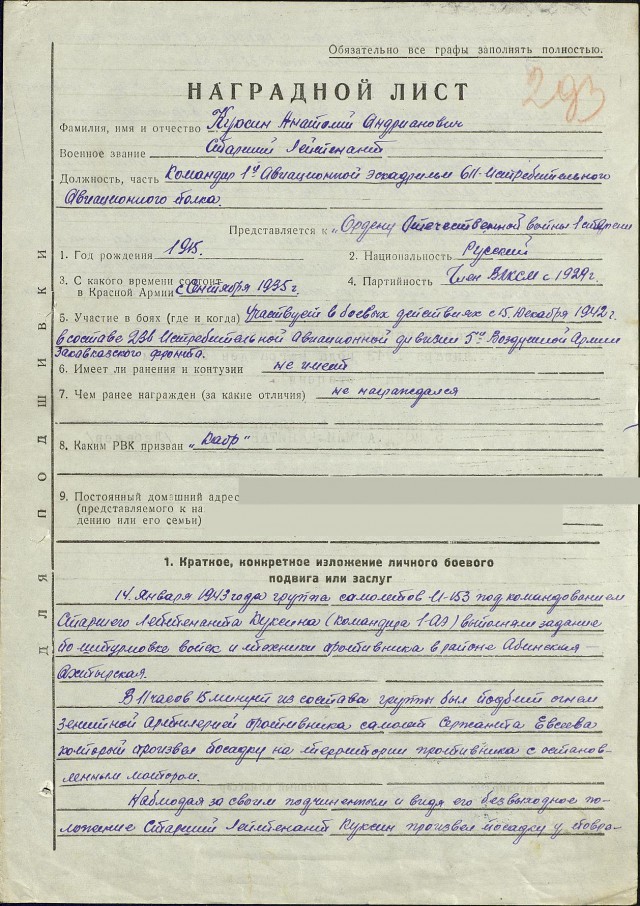 Обязательно все графы заполнять полностью.
293
НАГРАДНОЙ ЛИСТ
Фамилия, имя и отчество Куксин Анатолий Андрианович
Военное звание Старший Лейтенант
Должность, часть Командир 1й Авиационной эскадрильи 611-Истребительного
Авиационного полка.
Представляется к Ордену Отечественной войны 1 степени
1. Год рождения 1915.
2. Национальность Русский
3. С какого времени состоит
в Красной Армии с Сентября 1935 г.
4. Партийность Член ВЛКСМ с 1929 г.
5. Участие в боях (где и когда) Участвует в боевых действиях с 15 Декабря 1942 г.
в составе 236 Истребительной Авиационной дивизии 5ой Воздушной Армии
Закавказского фронта.
6. Имеет ли ранения и контузии не имеет
7. Чем ранее награжден (за какие отличия) не награждался
8. Каким РВК призван "Кадр"
9. Постоянный домашний адрес
(представляемого к на
дению или его семьи)
ДЛЯ ПОДШИВКИ
1. Краткое, конкретное изложение личного боевого
подвига или заслуг
14 Января 1943 года группа самолетов И-153 под командованием
Старшего Лейтенанта Куксина (командира 1-АЭ) выполняя задание
по штурмовке войск и техники противника в районе Абинская –
Ахтырская.
В 11 часов 15 минут из состава группы был подбит огнем
зенитной артилерией противника самолет Сержанта Евсеева
который произвел посадку на территории противника с останов-
ленным мотором.
Наблюдая за своим подчиненным и видя его безвыходное по-
ложение Старший Лейтенант Куксин произвел посадку у